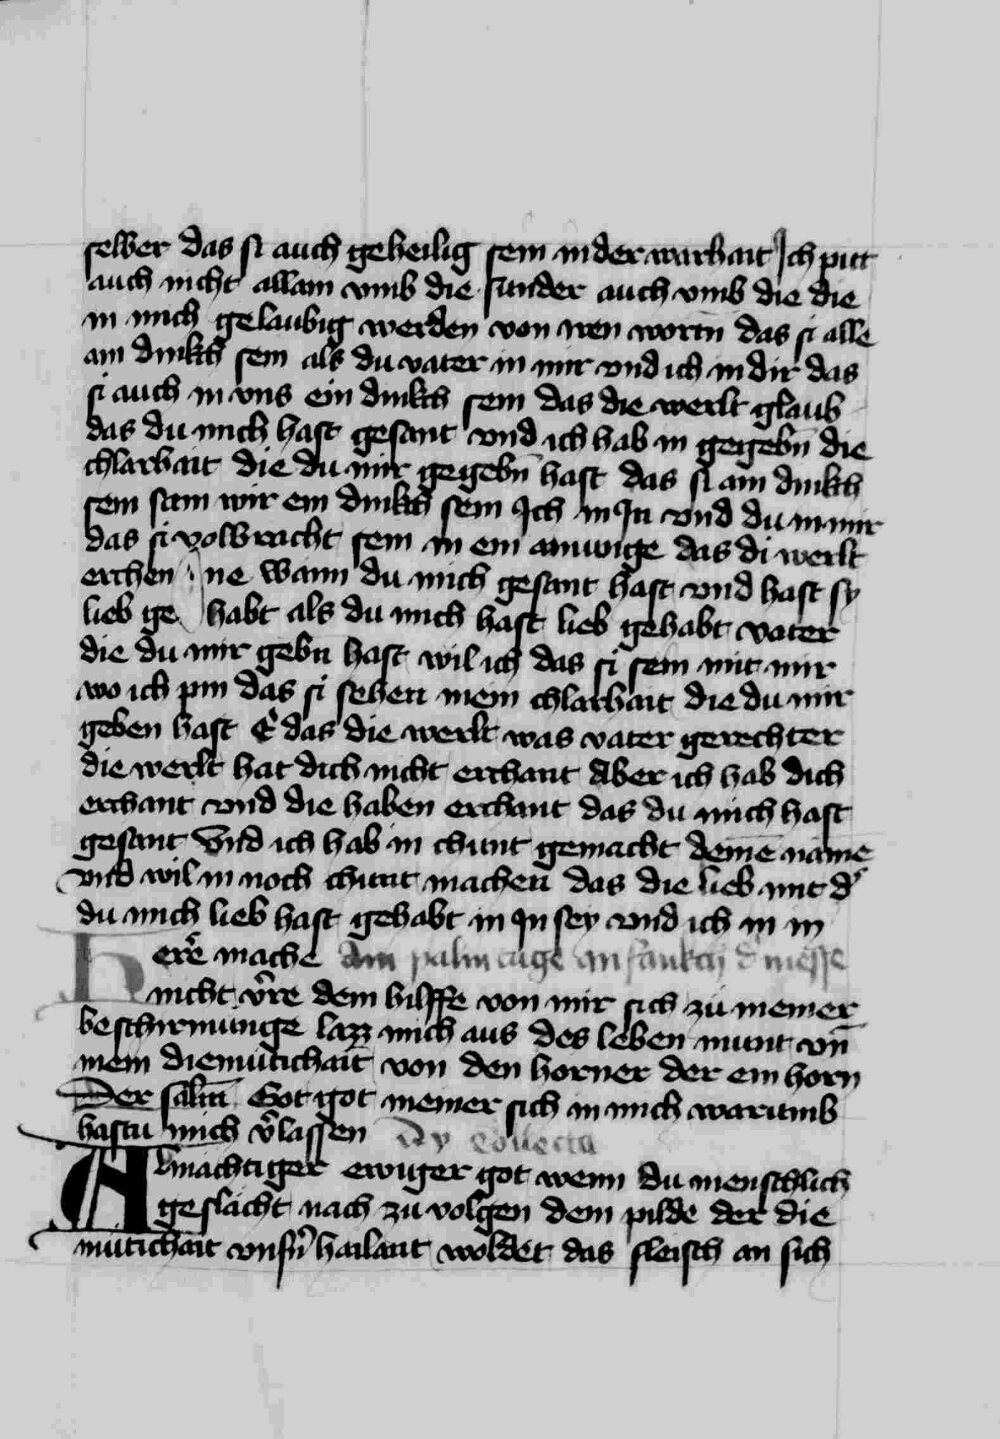 selber das si auch geheilig sein in der warhait Ich pitt
auch nicht allain vmb die sunder auch vmb die die
in mich gelaubig werden von iren wortn̄ das si alle
ain dinkch sein als du vater in mir vnd ich in dir das
si auch in vns ein dinkch sein das die werlt glaub
das du mich hast gesant vnd ich hab in gegebn̄ die
chlarhait die du mir gegebn̄ hast das si ain dinkch
sein sam wir ein dinkch sein Ich in In vnd du in mir
das si volbracht sein in ein ainunge das di werlt
erchen ne wann du mich gesant hast vnd hast sy
lieb ge habt als du mich hast lieb gehabt vater
die du mir gebn hast wil ich das si sein mit mir
wo ich pin das si sehen mein chlarhait die du mir
geben hast E das die werlt was vater gerechter
die werlt hat dich nicht erchant Aber ich hab dich
erchant vnd die haben erchant das du mich hast
gesant Vnd ich hab in chunt gemacht deinē name
vnd wil in noch chunt machen das die lieb mit d'
du mich lieb hast gehabt in In sey vnd ich in in
Herre mache Am palm tage anfankch d' messe
nicht v̄re dein hilffe von mir sich zu meiner
beschirmunge lazz mich aus des leben munt vn̄
mein diemutichait von den horner der ein horn
Der salm Got got meiner sich in mich warumb
hastu mich v̄lassen Dy Collecta
Almachtiger ewiger got wenn du menschlich
geslácht nach zu volgen dem pilde der die
mutichait vnsn̄ hailant woldet das fleisch an sich